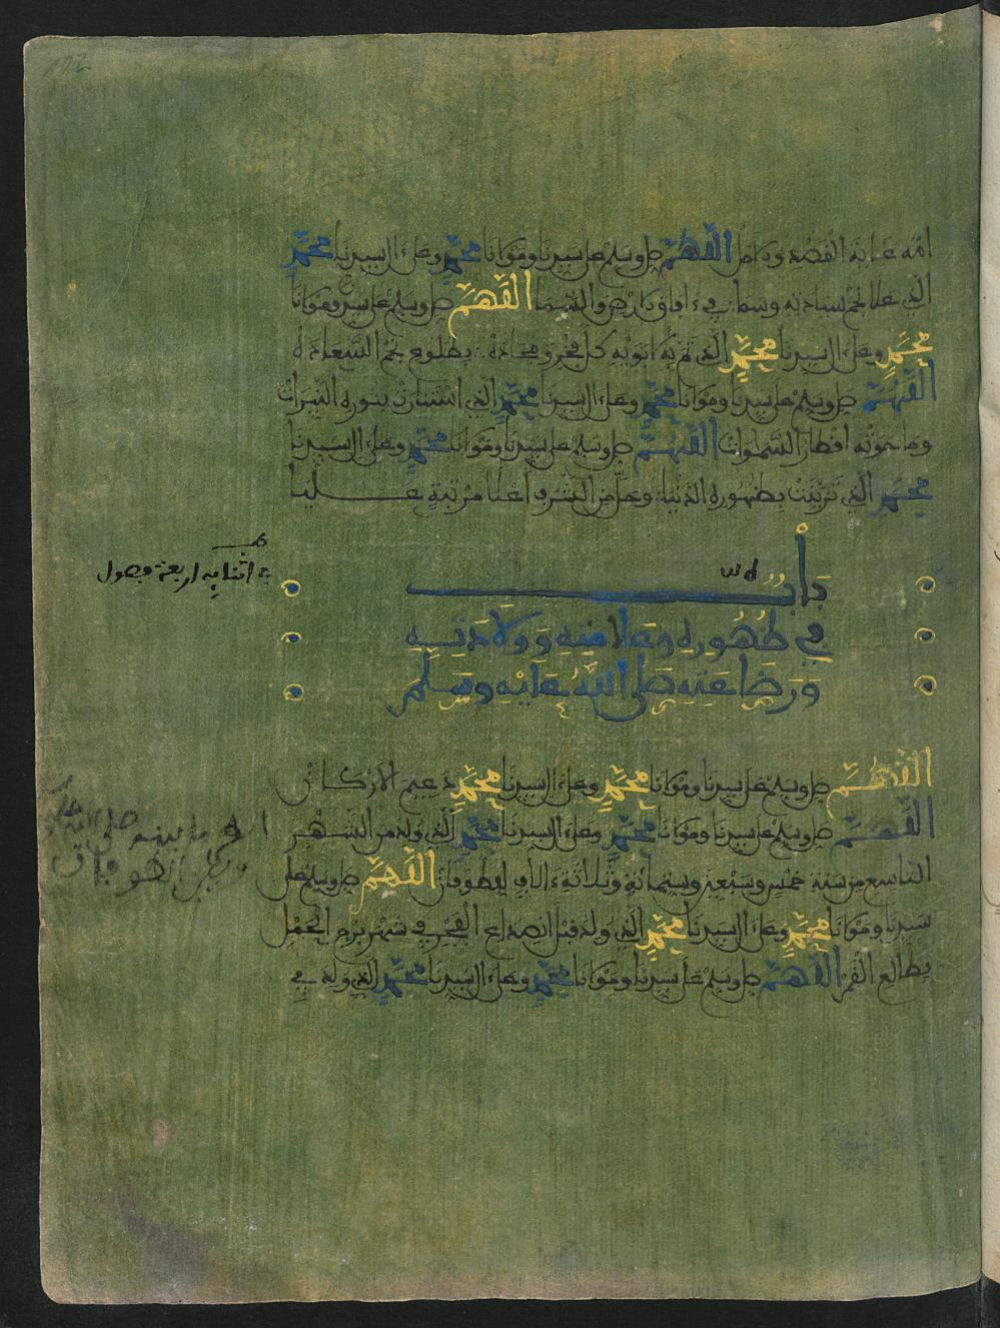 الله غاية القصد وكامل اللهم صل وسلم على سيدنا ومولانا محمد وعلى ال سيدنا محمد
الذي علا نجم سيادته وسما في افاق الارض والسما اللهم صل وسلم على سيدنا ومولانا
محمد وعلى ال سيدنا محمد الذي كل بطلوع نجم السعادة
اللهم صل وسلم على سيدنا ومولانا محمد وعلى ال سيدنا محمد الذي استنارت بنوره النيرات
وما حوته اقطار السموات اللهم صل وسلم على سيدنا ومولانا محمد وعلى ال سيدنا
محمد الذي تزينت بظهوره الدنيا وحل من الشرف اعلا مرتبة عليا
باب
في ظهوره وعلامته وولادته
ورضاعته صلى الله عليه وسلم
في اثنايه اربعة فصول
اللهم صل وسلم على سيدنا ومولانا محمد وعلى ال سيدنا محمد دعيم الاركان
اللهم صل وسلم على سيدنا ومولانا محمد وعلى ال سيدنا محمد الذي ولد من الشهر
التاسع من سنة خمس وسبعين وستمائة وثلاثة ءالاف للطوفان اللهم صل وسلم على
سيدنا ومولانا محمد وعلى ال سيدنا محمد الذي ولد قبل انصداع الفجر في شهر برج الحمل
بطالع القمر اللهم صل وسلم على سيدنا ومولانا محمد وعلى ال سيدنا محمد الذي ولد في